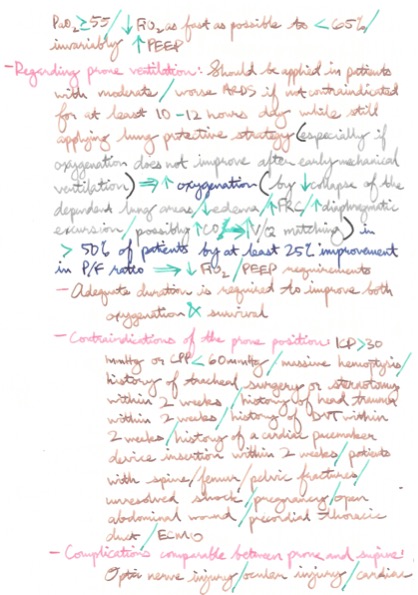 PaO₂ ≥ 55 / ↓ FiO₂ as fast as possible to < 65% /
invariably ↑ PEEP
- Regarding prone ventilation: Should be applied in patients
with moderate / worse ARDS if not contraindicated
for at least 10-12 hours day while still
applying lung protective strategy (especially if
oxygenation does not improve after early mechanical
ventilation) ⇒ ↑ oxygenation (by ↓ collapse of the
dependent lung areas / ↓ edema / ↑ FRC / ↑ diaphragmatic
excursion / possibly ↑ CO ⇒ ↑ V/Q matching) in
> 50% of patients by at least 25% improvement
in P/F ratio ⇒ ↓ FiO₂ / PEEP requirements
- Adequate duration is required to improve both
oxygenation & survival
- Contraindications of the prone position: ICP > 30
mmHg or CPP < 60 mmHg / massive hemoptysis /
history of tracheal surgery or sternotomy
within 2 weeks / history of head trauma
within 2 weeks / history of DVT within
2 weeks / history of a cardiac pacemaker
device insertion within 2 weeks / patients
with spine / femur / pelvic fractures /
unresolved shock / pregnancy / open
abdominal wound / thoracic
duct / ECMO
- Complications comparable between prone and supine:
Optic nerve injury / ocular injury / cardiac